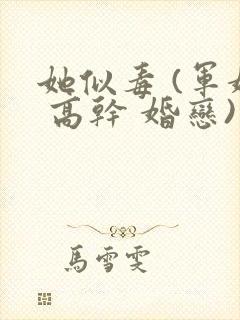 她似毒(軍婚
高幹 婚戀)
馬雪雯